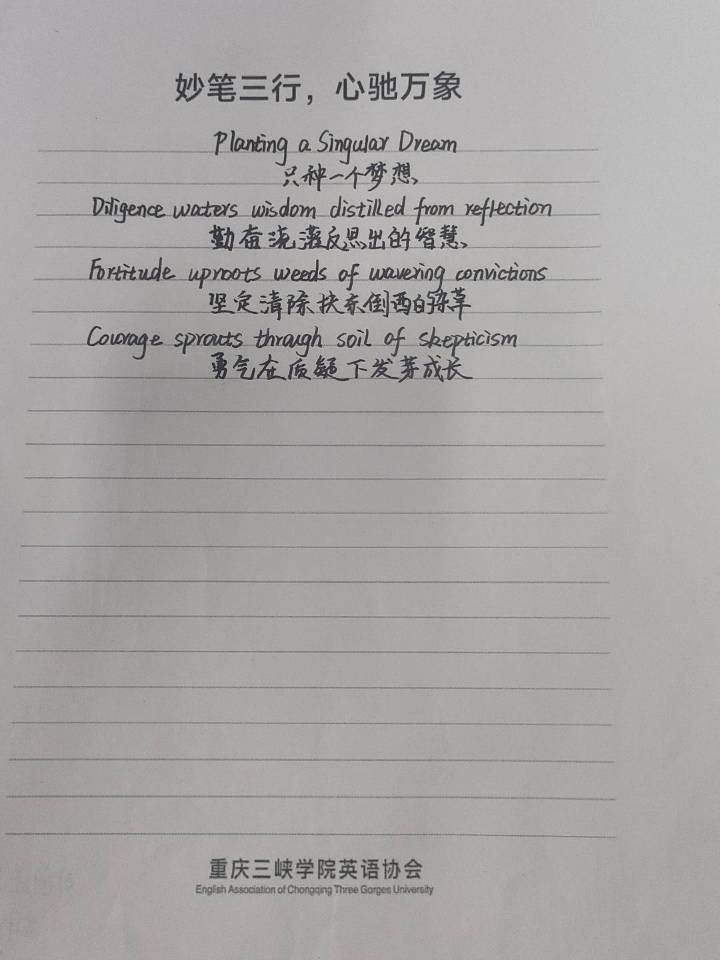 妙笔三行，心驰万象
Planting a Singular Dream
只种一个梦想
Diligence waters wisdom distilled from reflection
勤奋浇灌反思出的智慧
Fortitude uproots weeds of wavering convictions
坚定清除扶东倒西的杂草
Courage sprouts through soil of skepticism
勇气在质疑下发芽成长
重庆三峡学院英语协会
English Association of Chongqing Three Gorges University